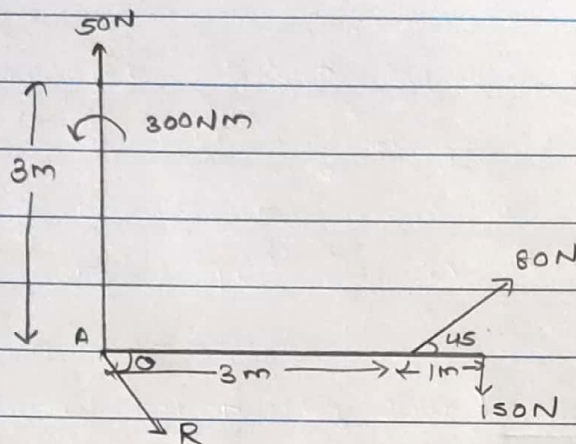 50N
300Nm
3m
80N
A
45
θ
3m
1m
150N
R